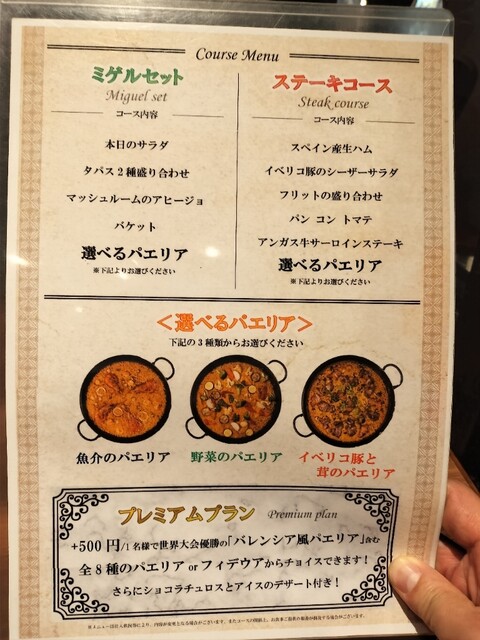 Course Menu
ミゲルセット
Miguel set
コース内容
本日のサラダ
タパス2種盛り合わせ
マッシュルームのアヒージョ
バケット
選べるパエリア
※下記よりお選びください
ステーキコース
Steak course
コース内容
スペイン産生ハム
イベリコ豚のシーザーサラダ
フリットの盛り合わせ
パン コン トマテ
アンガス牛サーロインステーキ
選べるパエリア
※下記よりお選びください
<選べるパエリア>
下記の3種類からお選びください
魚介のパエリア
野菜のパエリア
イベリコ豚と
茸のパエリア
プレミアムプラン Premium plan
+500円/1名様で世界大会優勝の「バレンシア風パエリア」含む
全8種のパエリア or フィデウアからチョイスできます!
さらにショコラチュロスとアイスのデザート付き!